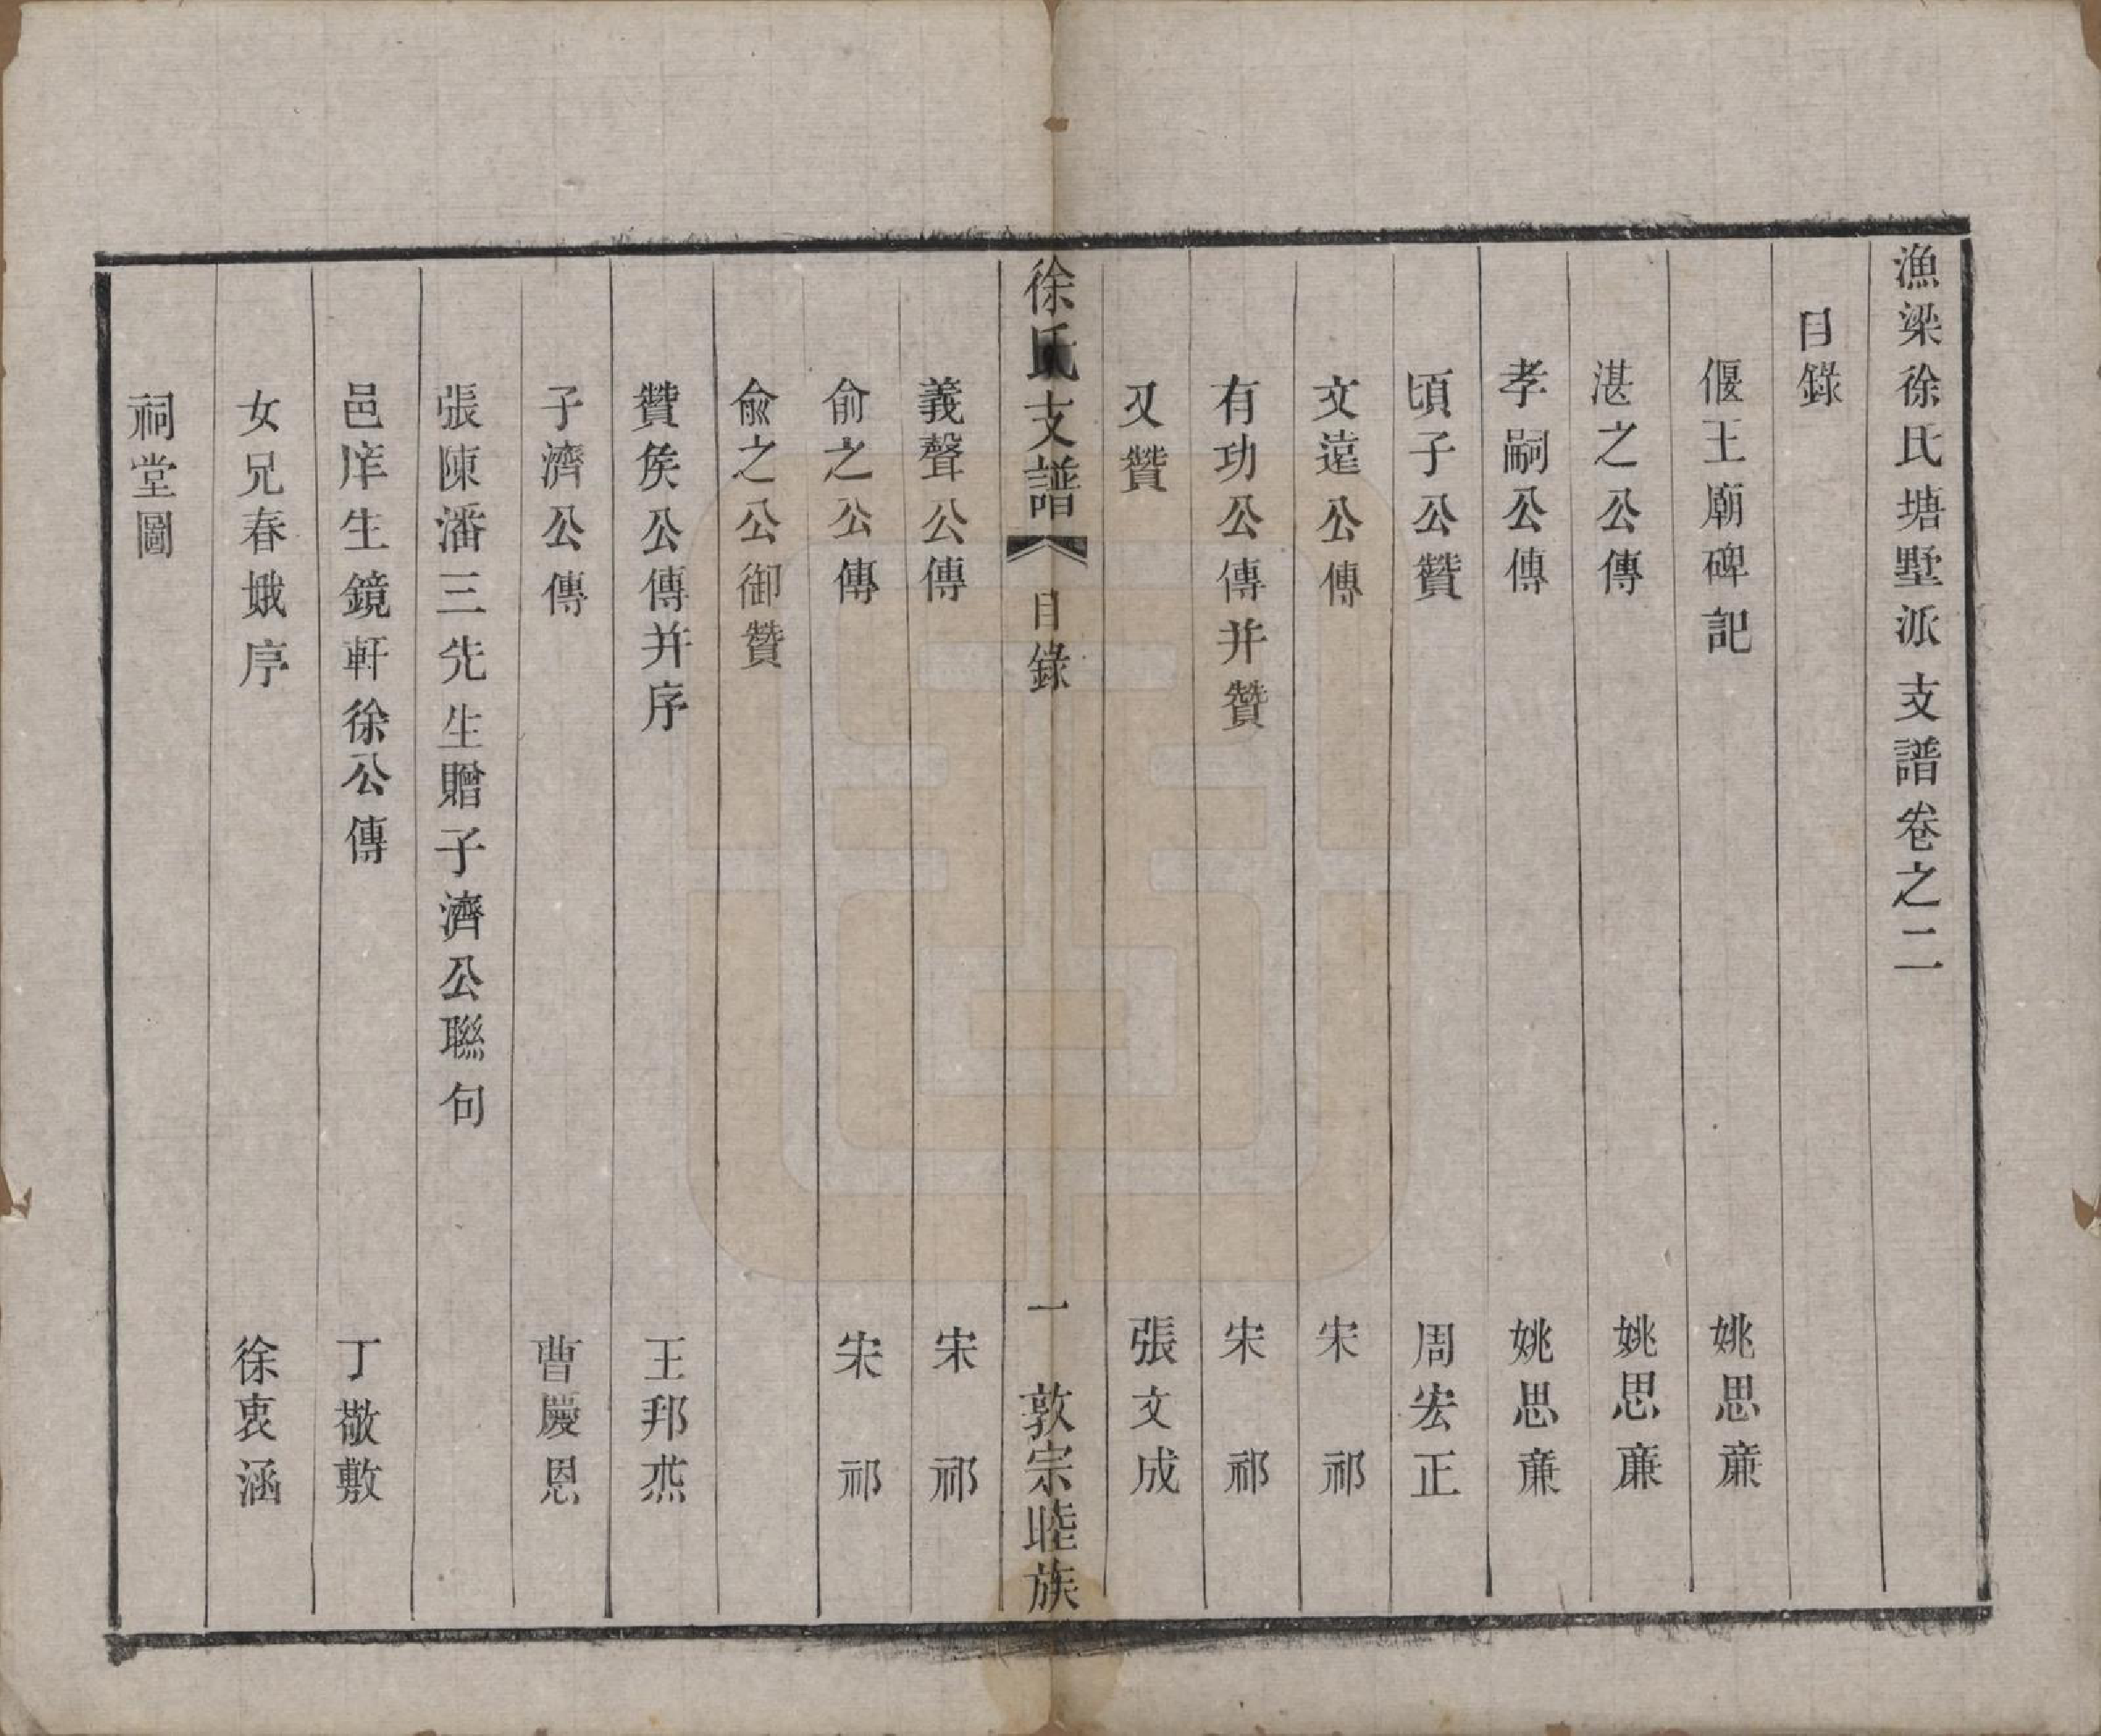 漁梁徐氏塘墅派支譜卷之二
目錄
偃王廟碑記 姚思亷
湛之公傳 姚思亷
孝嗣公傳 姚思亷
頃子公贊 周宏正
文遠公傳 宋祁
有功公傳并贊 宋祁
又贊 張文成
徐氏支譜 目錄 一 敦宗睦族
義聲公傳 宋祁
俞之公傳 宋祁
俞之公御贊
贊侯公傳并序 王邦燕
子濟公傳 曹慶恩
張陳潘三先生贈子濟公聯句
邑庠生鏡軒徐公傳 丁敬敷
女兄春娥序 徐衷涵
祠堂圖